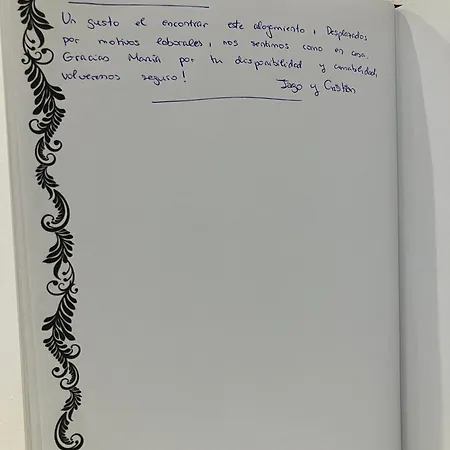 Un gusto el encontrar este alojamiento, Desplazados
por motivos laborales, nos sentimos como en casa.
Gracias María por tu disponibilidad y amabilidad,
volveremos seguro!
Iago y Cristian